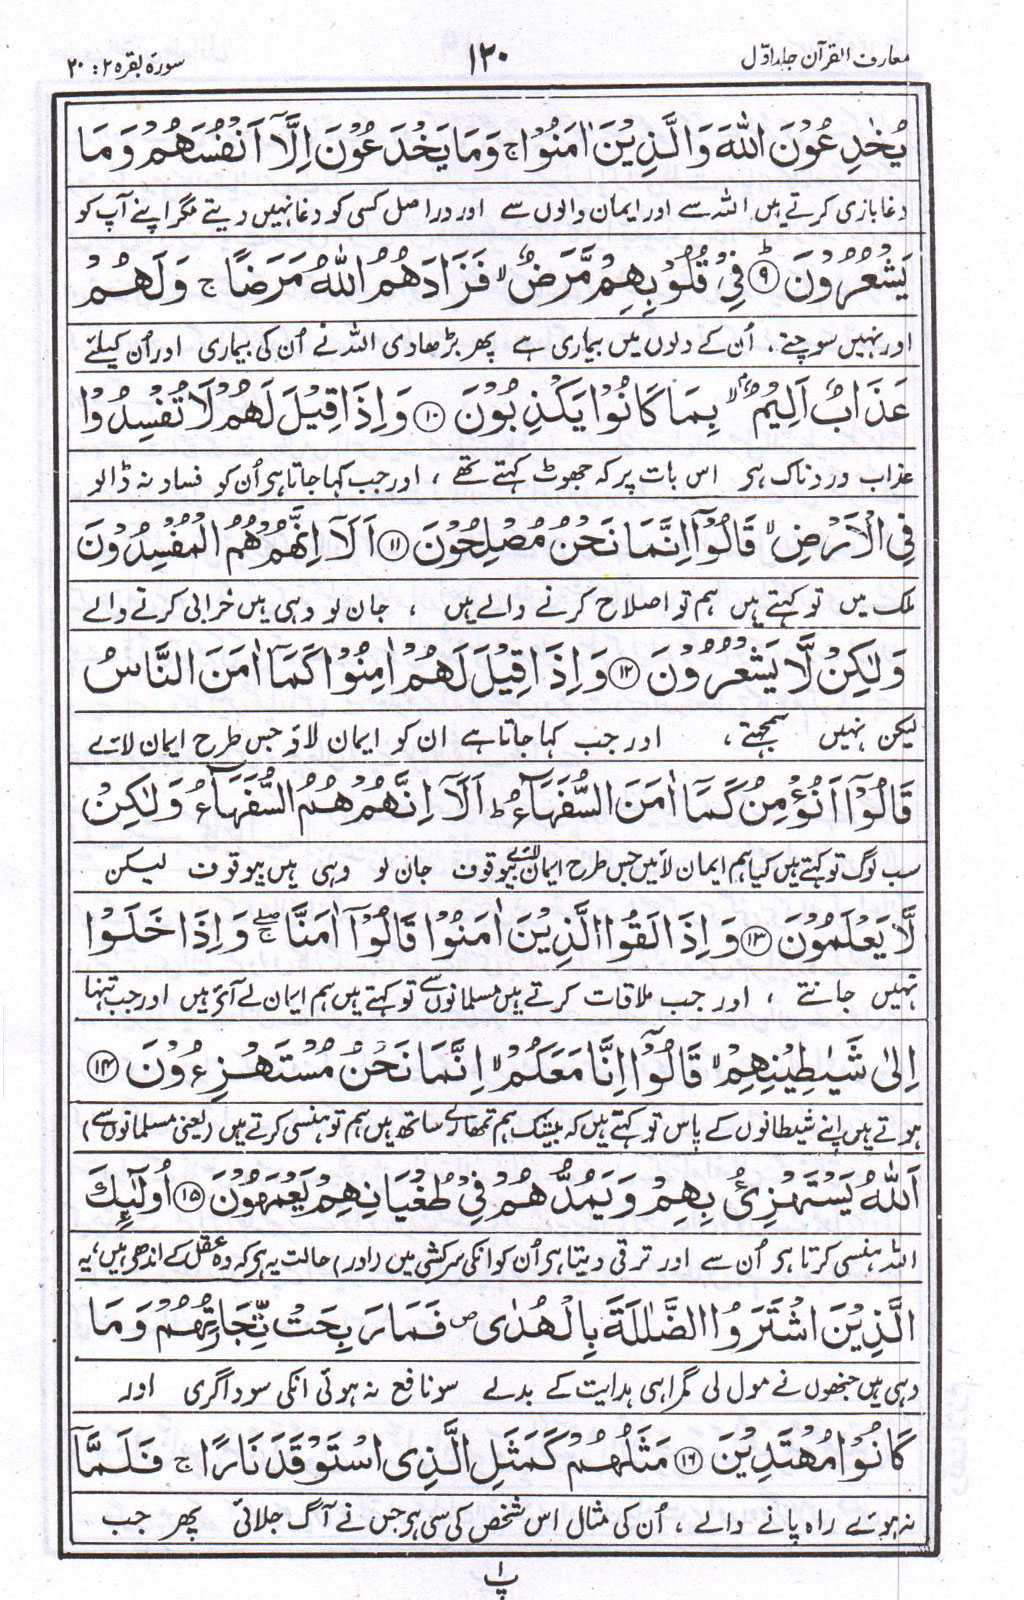 معارف القرآن جلد اوّل ۱۲۰ سورۃ بقرہ ۲ : ۲۰
يُخٰدِعُوْنَ اللّٰهَ وَالَّذِيْنَ اٰمَنُوْا ۚ وَمَا يَخْدَعُوْنَ اِلَّآ اَنْفُسَهُمْ وَمَا
دغا بازی کرتے ہیں اللہ سے اور ایمان والوں سے اور در اصل کسی کو دغا نہیں دیتے مگر اپنے آپ کو
يَشْعُرُوْنَ ؕ ۹ فِيْ قُلُوْبِهِمْ مَّرَضٌ ۙ فَزَادَهُمُ اللّٰهُ مَرَضًا ۚ وَلَهُمْ
اور نہیں سوچتے ، اُن کے دلوں میں بیماری ہے پھر بڑھا دی اللہ نے اُن کی بیماری اور اُن کیلئے
عَذَابٌ اَلِيْمٌ ۢ ۙ بِمَا كَانُوْا يَكْذِبُوْنَ ۱۰ وَاِذَا قِيْلَ لَهُمْ لَا تُفْسِدُوْا
عذاب دردناک ہے اس بات پر کہ جھوٹ کہتے تھے ، اور جب کہا جاتا ہے اُن کو فساد نہ ڈالو
فِي الْاَرْضِ ۙ قَالُوْٓا اِنَّمَا نَحْنُ مُصْلِحُوْنَ ۱۱ اَلَآ اِنَّهُمْ هُمُ الْمُفْسِدُوْنَ
ملک میں تو کہتے ہیں ہم تو اصلاح کرنے والے ہیں ، جان لو وہی ہیں خرابی کرنے والے
وَلٰكِنْ لَّا يَشْعُرُوْنَ ۱۲ وَاِذَا قِيْلَ لَهُمْ اٰمِنُوْا كَمَآ اٰمَنَ النَّاسُ
لیکن نہیں سمجھتے ، اور جب کہا جاتا ہے ان کو ایمان لاؤ جس طرح ایمان لائے
قَالُوْٓا اَنُؤْمِنُ كَمَآ اٰمَنَ السُّفَهَآءُ ؕ اَلَآ اِنَّهُمْ هُمُ السُّفَهَآءُ وَلٰكِنْ
سب لوگ تو کہتے ہیں کیا ہم ایمان لائیں جس طرح ایمان لائے بیوقوف جان لو وہی ہیں بیوقوف لیکن
لَّا يَعْلَمُوْنَ ۱۳ وَاِذَا لَقُوا الَّذِيْنَ اٰمَنُوْا قَالُوْٓا اٰمَنَّا ۖۚ وَاِذَا خَلَوْا
نہیں جانتے ، اور جب ملاقات کرتے ہیں مسلمانوں سے تو کہتے ہیں ہم ایمان لے آئے ہیں اور جب تنہا
اِلٰى شَيٰطِيْنِهِمْ ۙ قَالُوْٓا اِنَّا مَعَكُمْ ۙ اِنَّمَا نَحْنُ مُسْتَهْزِءُوْنَ ۱۴
ہوتے ہیں اپنے شیطانوں کے پاس تو کہتے ہیں کہ بیشک ہم تمہارے ساتھ ہیں ہم تو ہنسی کرتے ہیں (یعنی مسلمانوں سے)
اَللّٰهُ يَسْتَهْزِئُ بِهِمْ وَيَمُدُّهُمْ فِيْ طُغْيَانِهِمْ يَعْمَهُوْنَ ۱۵ اُولٰٓئِكَ
اللہ ہنسی کرتا ہے اُن سے اور ترقی دیتا ہے اُن کو انکی سرکشی میں (اور) حالت یہ ہے کہ وہ عقل کے اندھے ہیں ، یہ
الَّذِيْنَ اشْتَرَوُا الضَّلٰلَةَ بِالْهُدٰى ۖ فَمَا رَبِحَتْ تِّجَارَتُهُمْ وَمَا
وہی ہیں جنھوں نے مول لی گمراہی ہدایت کے بدلے سو نافع نہ ہوئی انکی سوداگری اور
كَانُوْا مُهْتَدِيْنَ ۱۶ مَثَلُهُمْ كَمَثَلِ الَّذِى اسْتَوْقَدَ نَارًا ۚ فَلَمَّآ
نہ ہوئے راہ پانے والے ، اُن کی مثال اس شخص کی سی ہے جس نے آگ جلائی پھر جب
پ۱